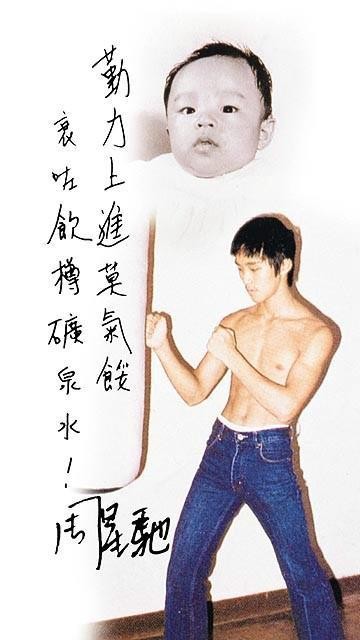 勤力上進莫氣餒
衰咗飲樽礦泉水！
周星馳